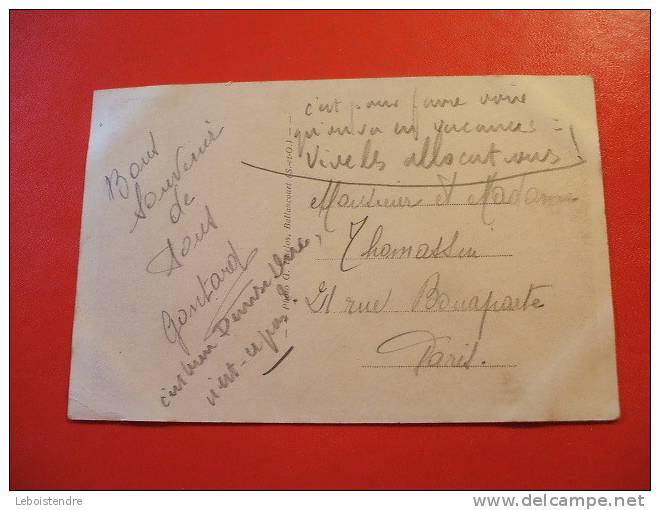 Bons
Souvenir
de
tous
Gontard
c'est bien
n'est-ce pas?
Photo G. Ballancourt (S.-&-O.)
c'est pour faire voir
qu'on va en vacances =
Vive les allocations!
Monsieur et Madame
Thomassin
21 rue Bonaparte
Paris.
Leboistendre
www.delcampe.net